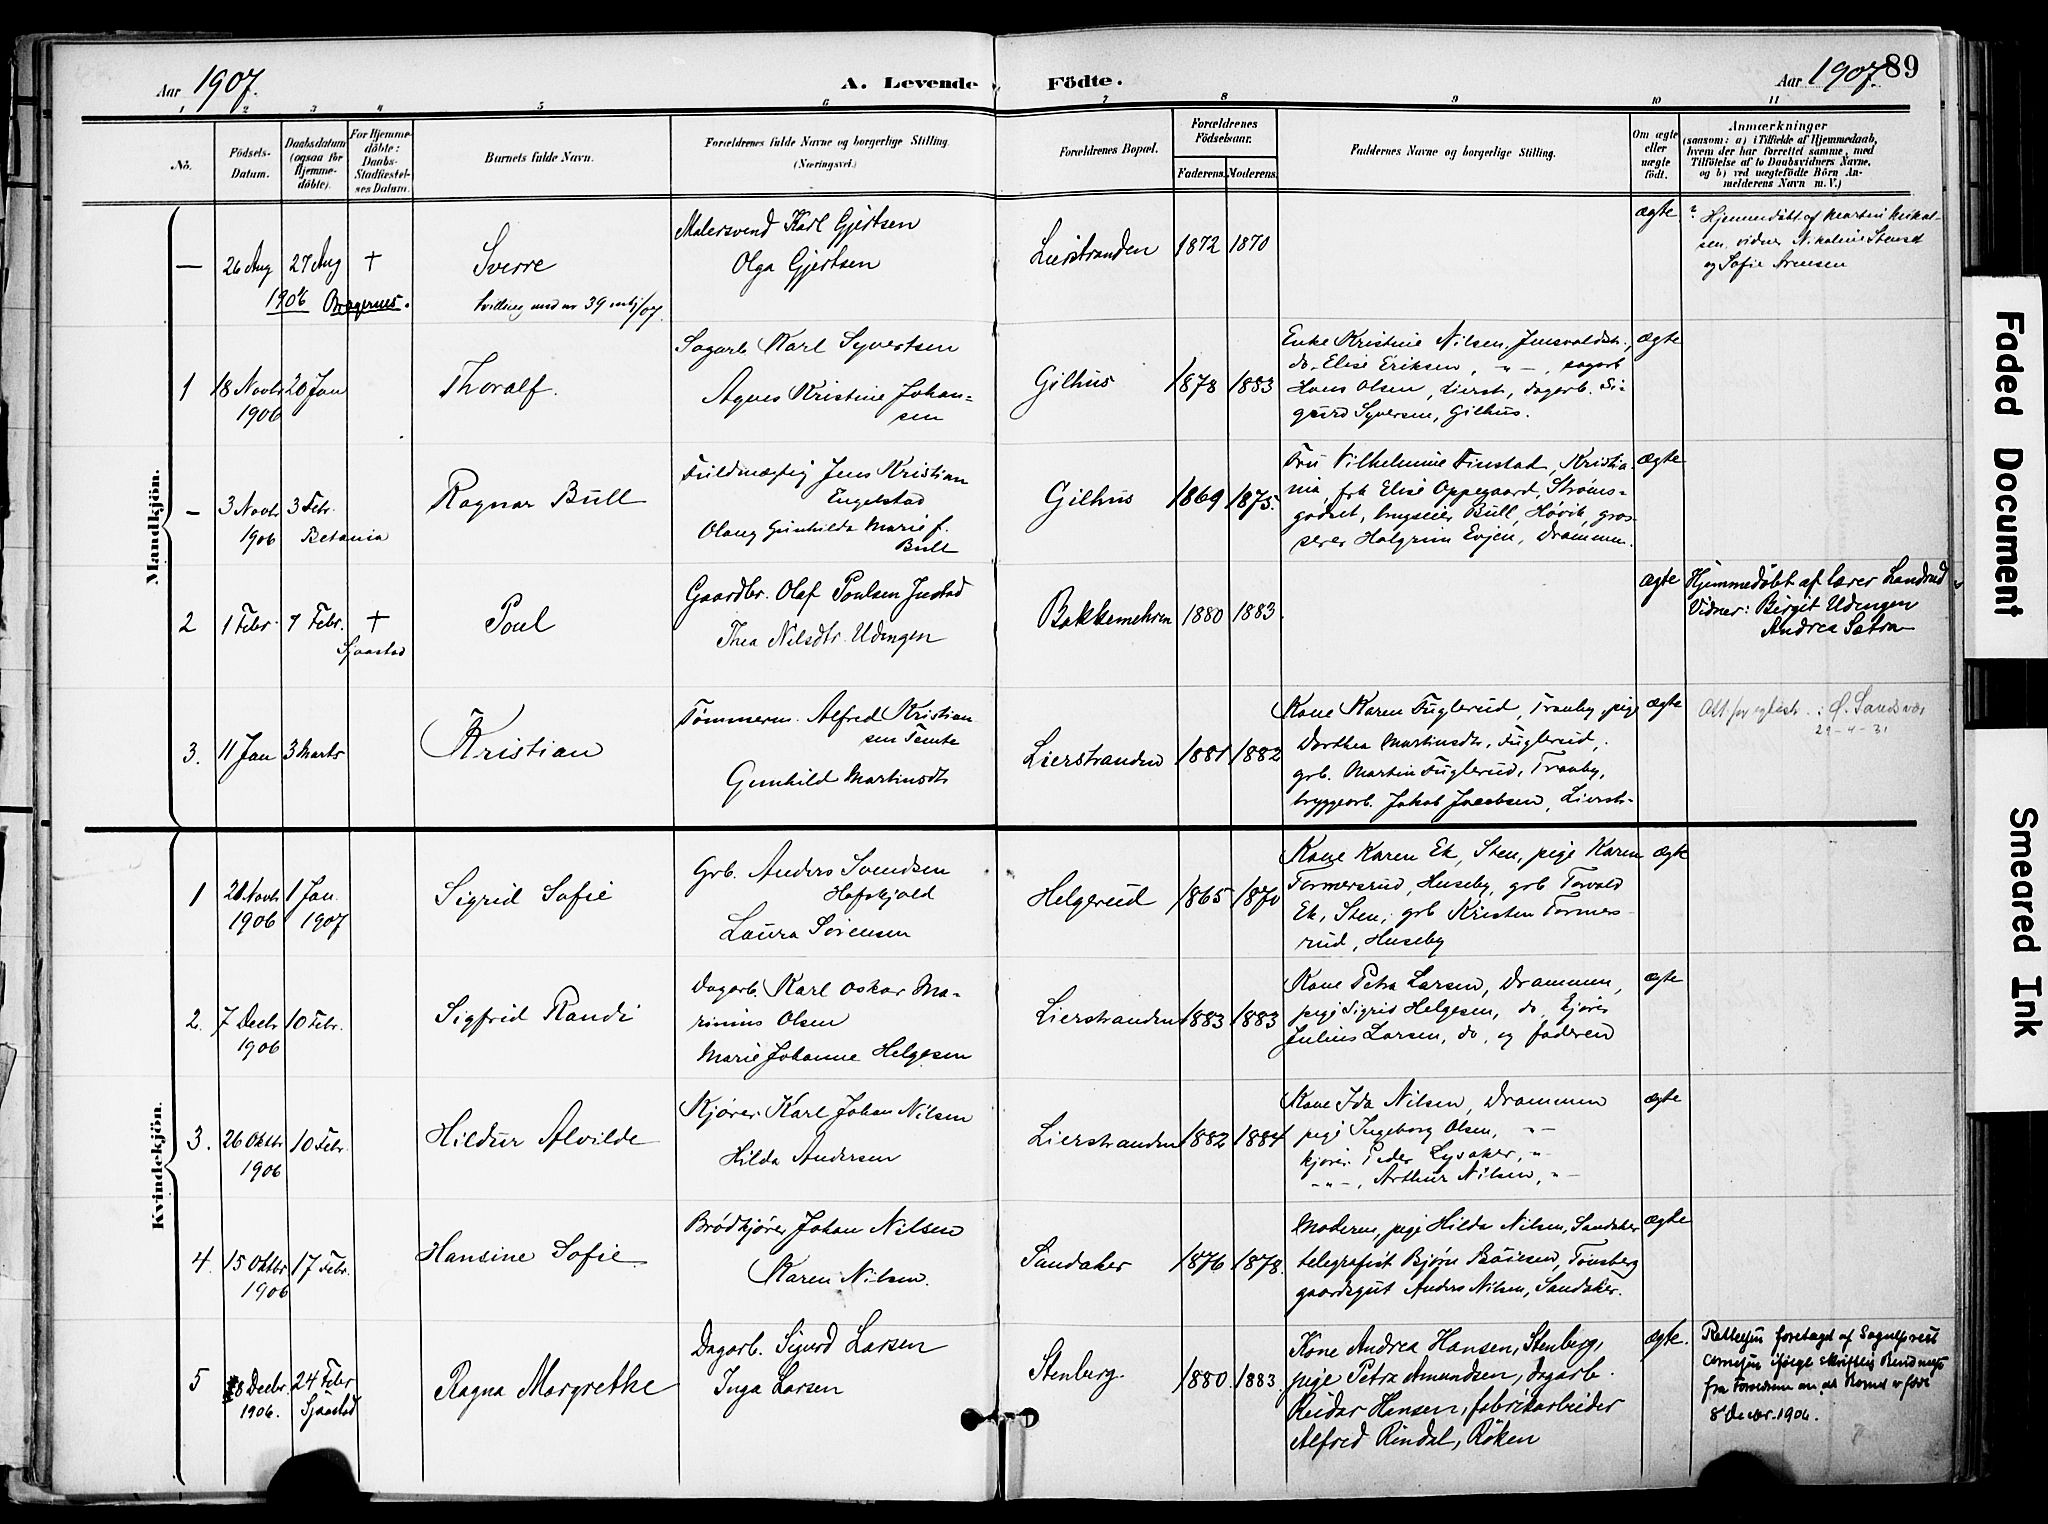 Aar 1907.
A. Levende Födte.
Aar 1907. 89
1 2 3 4 5 6 7 8 9 10 11
No.
Födsels-
Datum.
Daabsdatum
(ogsaa for
Hjemme-
döbte).
For Hjemme-
döbte:
Daabs-
Stadfæstel-
ses Datum.
Barnets fulde Navn.
Forældrenes fulde Navne og borgerlige Stilling.
(Næringsvei.)
Forældrenes Bopæl.
Forældrenes
Födselsaar.
Faderens. Moderens.
Faddernes Navne og borgerlige Stilling.
Om ægte
eller
uægte
födt.
Anmærkninger
(saasom: a) i Tilfælde af Hjemmedaab,
hvem der har forrettet samme, med
Tilföielse af to Daabsvidners Navne,
og b) ved uægtefödte Börn An-
melderens Navn m. V.)
Mandkjön.
— 26 Aug 27 Aug +
1906 Bragernes.
Sverre
tvilling med nr 39
Malersvend Karl Gjertsen
Olga Gjertsen
Lierstranden 1872 1870
ægte
Hjemmedøbt af Martin
vidner Nikoline
og Sofie Arnesen
1 18 Novbr 20 Jan
1906
Thoralf.
Sagarb. Karl Syvertsen
Agnes Kristine Johan-
sen
Gilhus 1878 1883
Enke Kristine Nilsen,
do. Elise Eriksen, " — , sagarb
Hans Olsen, Lierst., dagarb. Si-
gurd Syversen, Gilhus.
ægte
— 3 Novbr 3 Febr.
1906 Betania
Ragnar Bull
Fuldmægtig Jens Kristian
Engelstad
Olaug Gunhilda Marie f.
Bull
Gilhus 1869 1875.
Fru Vilhelmine Finstad, Kristia-
nia, frk Elise Oppegaard, Strøms-
godset, brugseier Bull, Høvik, gros-
serer Halgrim Evjen, Drammen.
ægte
2 1 Febr. 7 Febr. +
Sjaastad
Poul
Gaardbr. Olaf Poulsen Justad
Thea Nilsdtr. Udengen
Bakkemehren 1880 1883.
ægte
Hjemmedøbt af lærer Landrud
Vidner: Birgit Udengen
Andrea Satra
3. 11 Jan 3 Marts
Kristian
Tømmerm. Alfred Kristian-
sen Tømte
Gunhild Martinsdtr
Lierstranden 1881 1882
Kone Karen Fuglerud, Tranby, pige
Dorthea Martinsdtr, Fuglerud,
grb. Martin Fuglerud, Tranby,
bryggearb. Jakob Jacobsen, Lierstr.
ægte
Sandsvær
29-4-31
Kvindekjön.
1 21 Novbr 1 Jan.
1906 1907
Sigrid Sofie
Grb. Anders Svendsen
Hafskjold
Laura Sørensen
Helgerud 1865 1870
Kone Karen Ek, Sten, pige Karen
Tormersrud, Huseby, grb Torvald
Ek, Sten, grb Kristen Tormers-
rud, Huseby
ægte
2. 7 Decbr 10 Febr.
1906
Sigfrid Randi
Dagarb. Karl Oskar Ma-
rinius Olsen
Marie Johanne Helgesen
Lierstranden 1883 1883
Kone Petra Larsen, Drammen,
pige Sigrid Helgesen, do, kjører
Julius Larsen, do, og faderen
ægte
3. 26 Oktbr 10 Febr.
1906
Hildur Alvilde
Kjører Karl Johan Nilsen
Hilda Andersen
Lierstranden 1882 1884
Kone Ida Nilsen, Drammen
pige Ingeborg Olsen, " —
kjører Peder Lysaker, " —
— " —, Arthur Nilsen, " —
ægte
4. 15 Oktbr 17 Febr.
1906
Hansine Sofie
Brødkjører Johan Nilsen
Karen Nilsen.
Sandaker 1876 1878.
Moderen, pige Hilda Nilsen, Sandaker
telegrafist Bjørn Boiesen, Tønsberg
gaardsgut Anders Nilsen, Sandaker.
ægte
5 8 Decbr. 24 Febr
1906. Sjaastad
Ragna Margrethe
Dagarb. Sigurd Larsen
Inga Larsen
Stenberg. 1880. 1883
Kone Andrea Hansen, Stenberg,
pige Petra Amundsen, dagarb.
Reidar Hansen, fabrikarbeider
Alfred Rindal, Røken
ægte.
Rettelsen foretaget af Sogneprest
Arnesen ifølge skriftlig
fra Forældrene om at Barnet er født
8 Decbr. 1906.
Faded Document
Smeared Ink